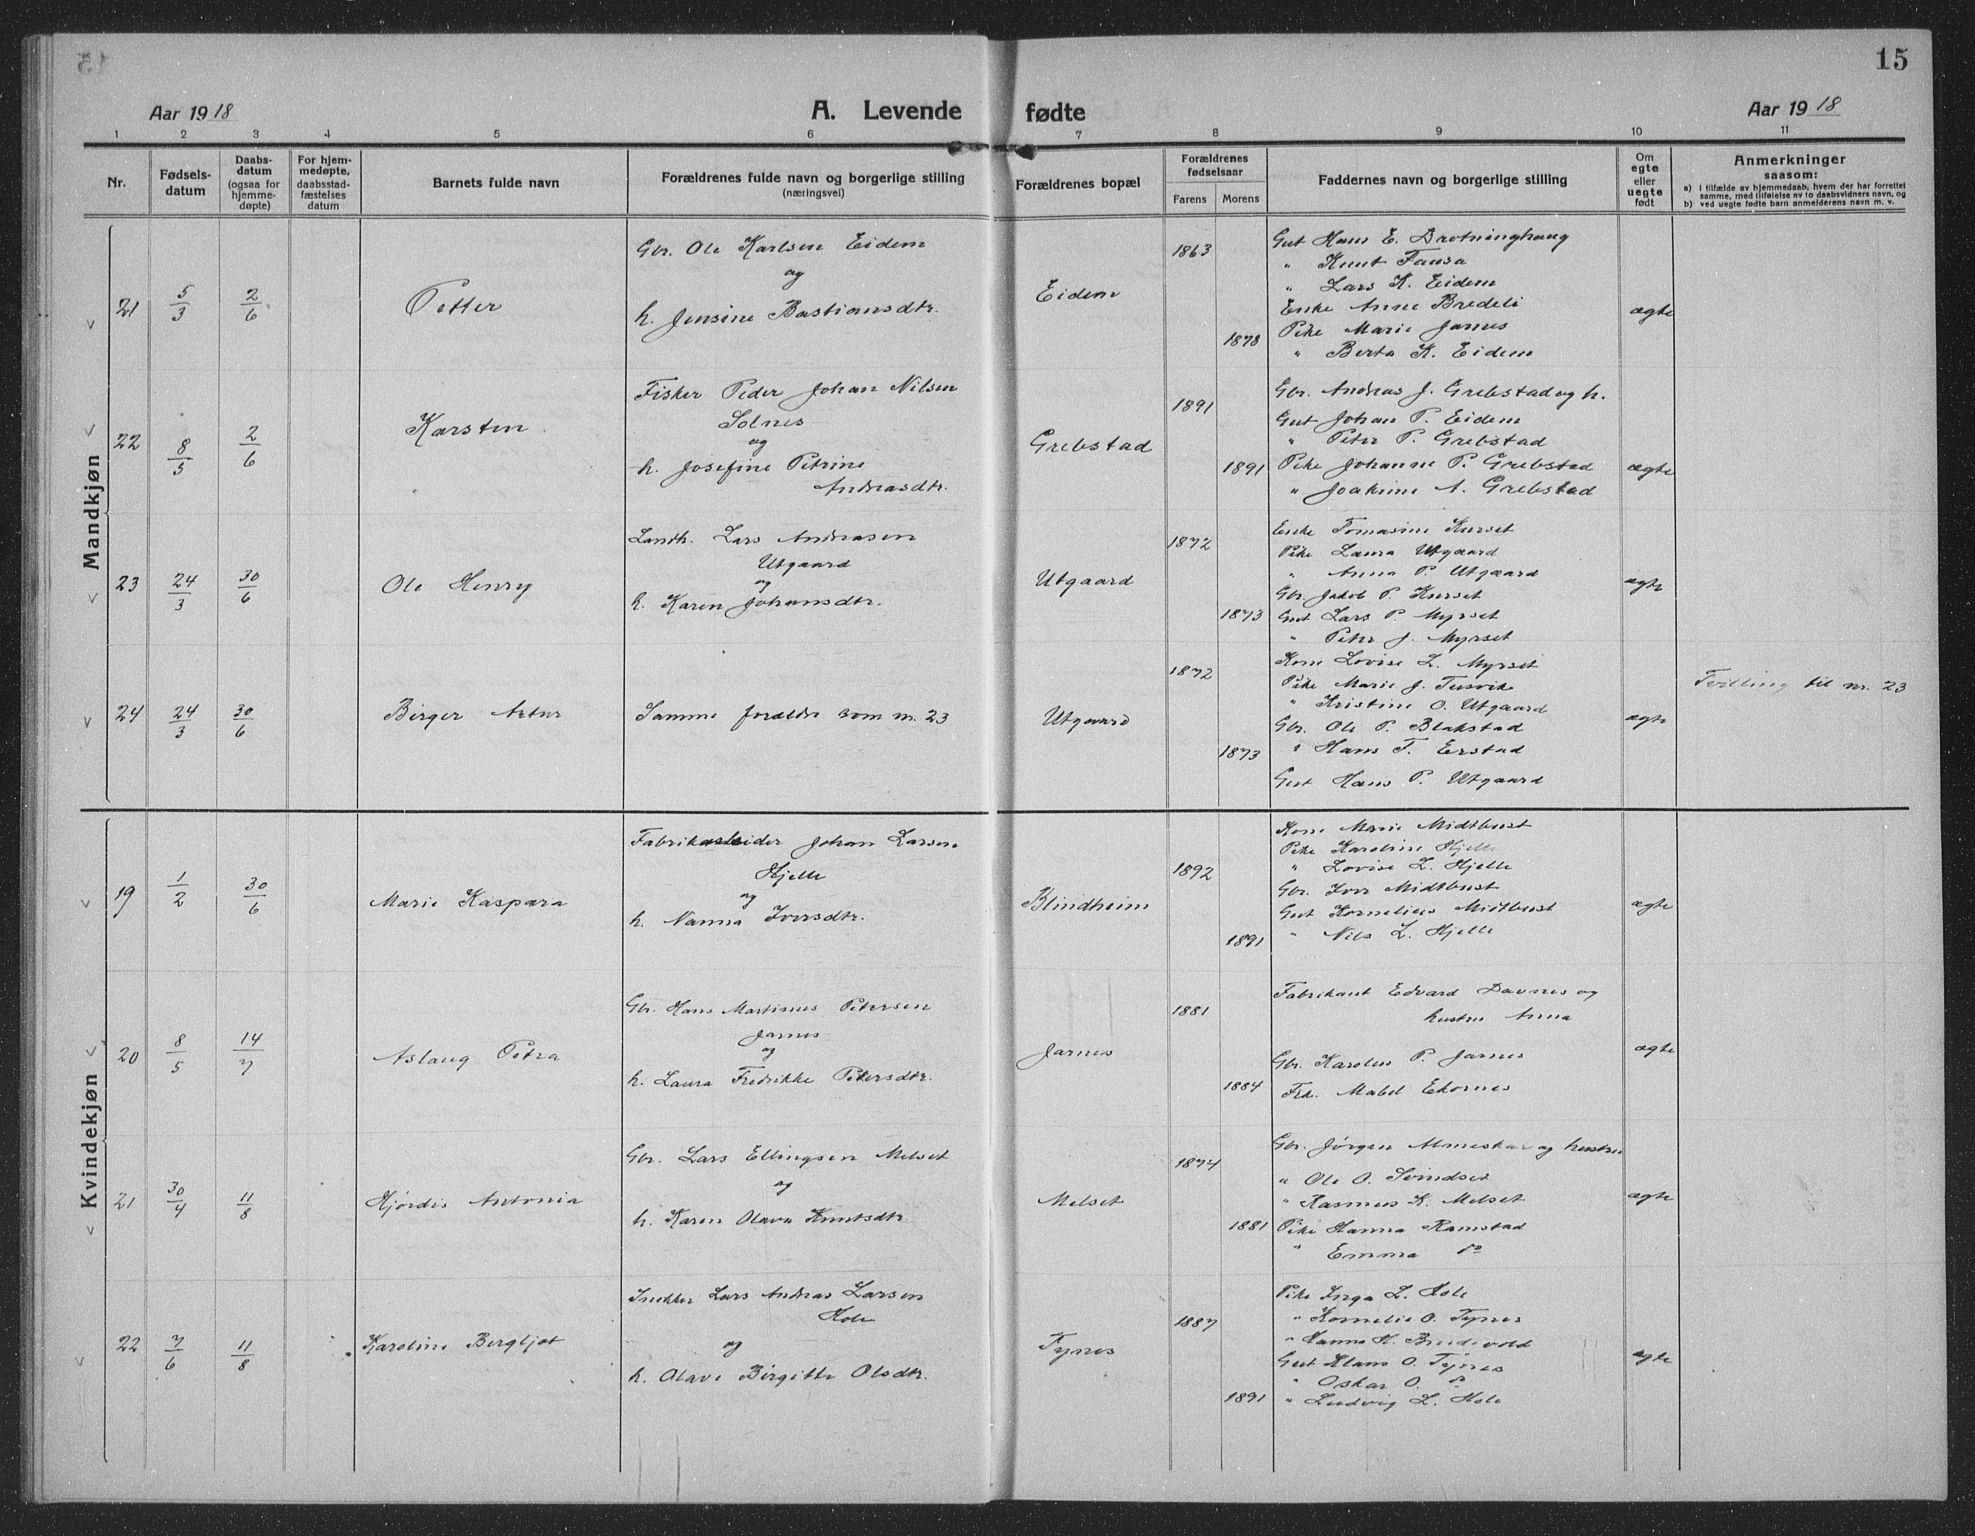 15
Aar 1918
A. Levende fødte
Aar 1918
1 2 3 4 5 6 7 8 9 10 11
Nr.
Fødsels-
datum
Daabs-
datum
(ogsaa for
hjemme-
døpte)
For hjem-
medøpte,
daabsstad-
fæstelses
datum
Barnets fulde navn
Forældrenes fulde navn og borgerlige stilling
(næringsvei)
Forældrenes bopæl
Forældrenes
fødselsaar
Farens Morens
Faddernes navn og borgerlige stilling
Om
egte
eller
uegte
født
Anmerkninger
saasom:
a) i tilfælde av hjemmedaab, hvem der har forrettet
samme, med tilføielse av to daabsvidners navn, og
b) ved uegte fødte barn anmelderens navn m. v.
Mandkjøn
21 5/3 2/6 Petter
Gbr. Ole Karlsen Eidem
og
h. Jensine Bastiansdtr.
Eidem
1863
1878
Gut Hans E. Drotninghaug
" Knut Fausa
" Lars K. Eidem
Enke Anne Bredeli
Pike Marie Jarnes
" Berta K. Eidem
ægte
22 8/5 2/6 Karsten
Fisker Peder Johan Nilsen
Solnes
og
h. Josefine Petrine
Andreasdtr.
Grebstad
1891
1891
Gbr. Andreas J. Grebstad og h.
Gut Johan P. Eidem
" Peter P. Grebstad
Pike Johanne P. Grebstad
" Joakime A. Grebstad
ægte
23 24/3 30/6 Ole Henry
Landh. Lars Andreasen
Utgaard
og
h. Karen Johansdtr.
Utgaard
1872
1873
Enke Tomasine Kurset
Pike Laura Utgaard
" Anna P. Utgaard
Gbr. Jakob P. Kurset
Gut Lars P. Myrset
" Peter J. Myrset
ægte
24 24/3 30/6 Birger Artur
Samme forældre som nr. 23
Utgaard
1872
1873
Kone Lovise L. Myrset
Pike Marie J. Tusvik
" Kristine O. Utgaard
Gbr. Ole P. Blakstad
" Hans T. Erstad
Gut Hans P. Utgaard
ægte
Tvilling til nr. 23
Kvindekjøn
19 1/2 30/6 Marie Kaspara
Fabrikarbeider Johan Larsen
Hjelle
og
h. Nanna Iversdtr.
Blindheim
1892
1891
Kone Marie Midtbust
Pike Karoline Hjelle
" Lovise L. Hjelle
Gbr. Iver Midtbust
Gut Kornelius Midtbust
" Nils L. Hjelle
ægte
20 8/5 14/7 Aslaug Petra
Gbr. Hans Martinus Petersen
Jarnes
og
h. Laura Fredrikke Petersdtr.
Jarnes
1881
1884
Fabrikant Edvard Davnes og
hustru Anna
Gbr. Karolus P. Jarnes
Frk. Mabel Ekornes
ægte
21 30/4 11/8 Hjørdis Antonia
Gbr. Lars Ellingsen Melset
og
h. Karen Olava Knutsdtr.
Melset
1874
1881
Gbr. Jørgen Almeskar og hustru
" Ole O. Svindset
" Rasmus K. Melset
Pike Hanna Ramstad
" Emma do
ægte
22 7/6 11/8 Karoline Bergljot
Snekker Lars Andreas Larsen
Hole
og
h. Olave Birgitte Olsdtr.
Tynes
1887
1891
Pike Inga L. Hole
" Kornelie O. Tynes
" Hanna H. Breidevold
Gut Klaus O. Tynes
" Oskar O. do
" Ludvig L. Hole
ægte